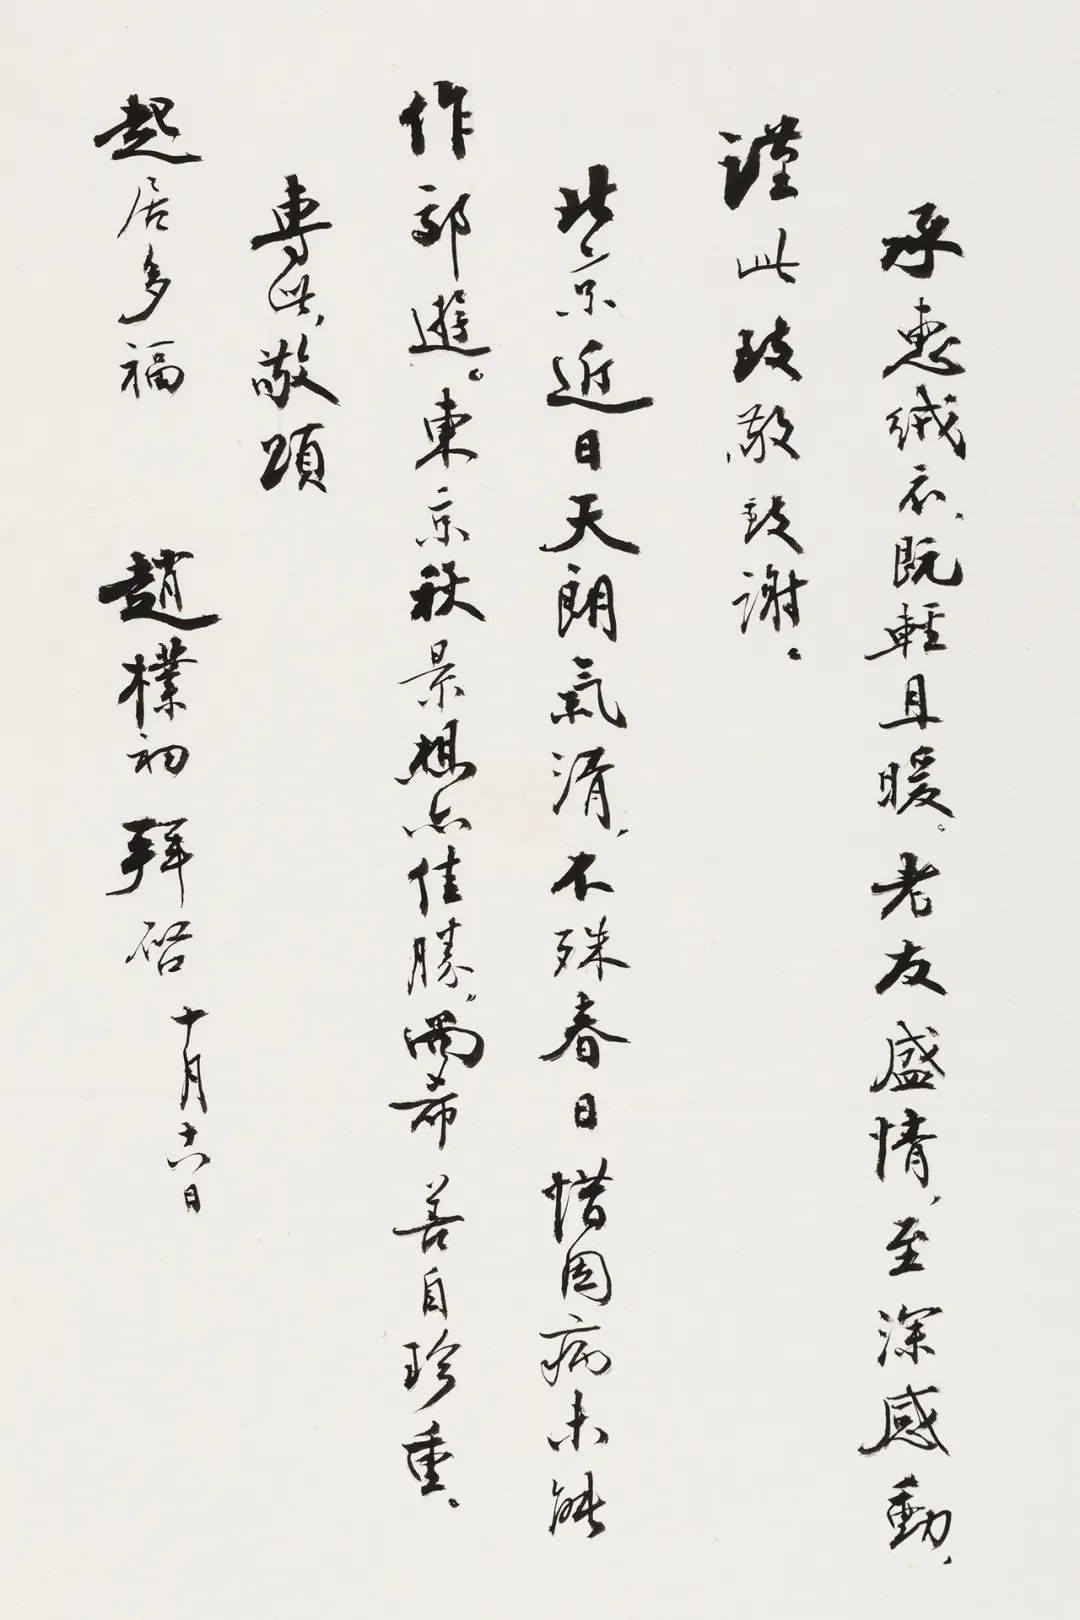 承惠绒衣，既輕且暖。老友盛情，至深感動，
謹此致敬致謝。
北京近日天朗氣清，不殊春日，惜因病未能
作郊遊。東京秋景想亦佳勝。尚希善自珍重。
專此，敬頌
起居多福
趙樸初拜啓
十月十六日